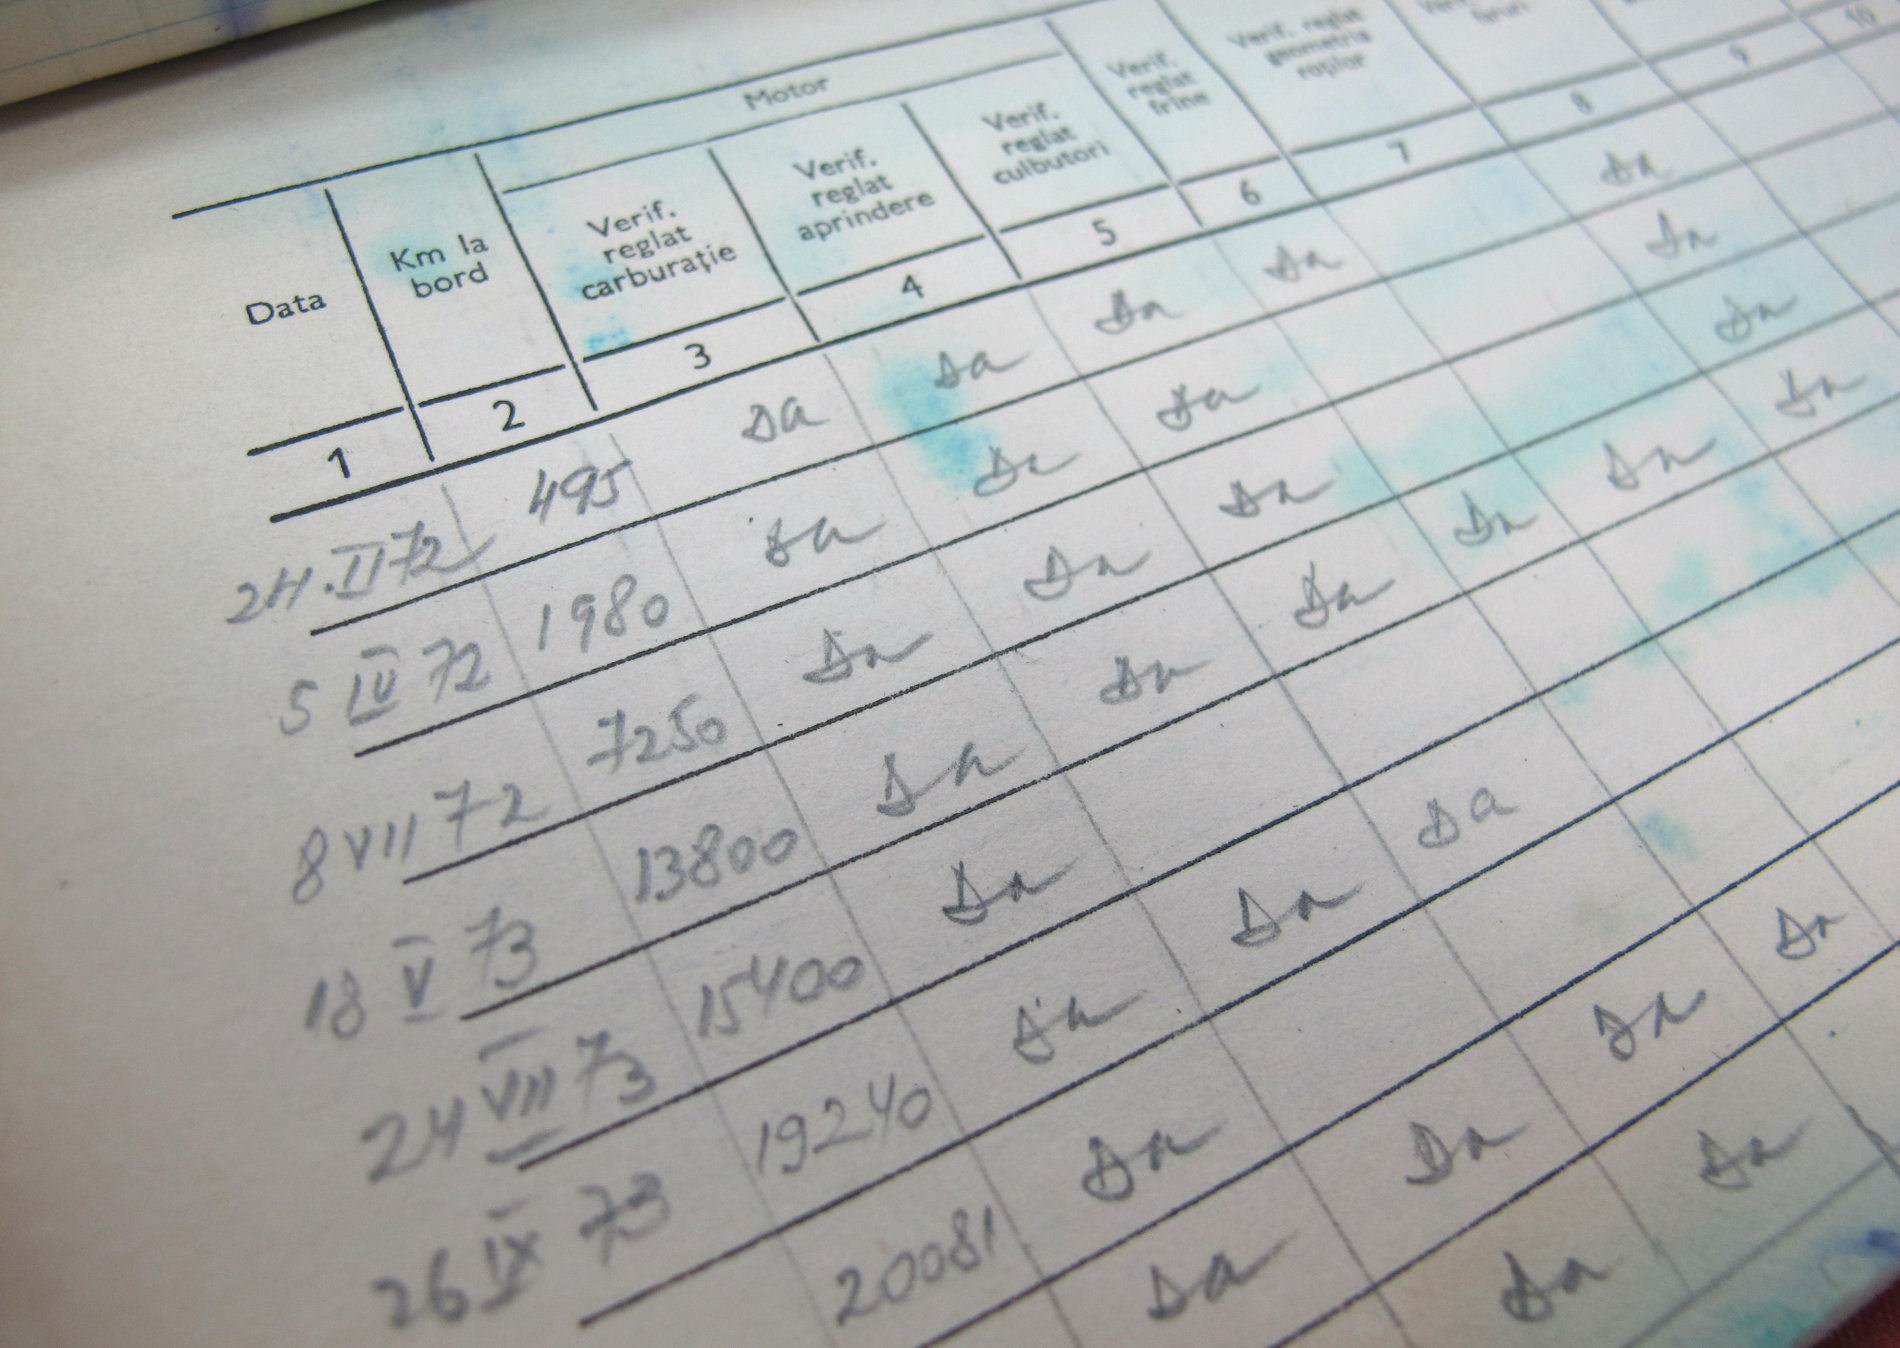 Motor
Data
Km la
bord
Verif.
reglat
carburație
Verif.
reglat
aprindere
Verif.
reglat
culbutori
Verif.
reglat
frîne
Verif. reglat
geometria
roților
faruri
1 2 3 4 5 6 7 8 9 10
24.II 72 495 Da Da Da Da Da
5 IV 72 1980 Da Da Da Da
8 VII 72 7250 Da Da Da Da
18 V 73 13800 Da Da Da Da Da Da
24 VII 73 15400 Da
26 IX 73 19240 Da Da Da
20081 Da
Da Da Da Da
Da Da